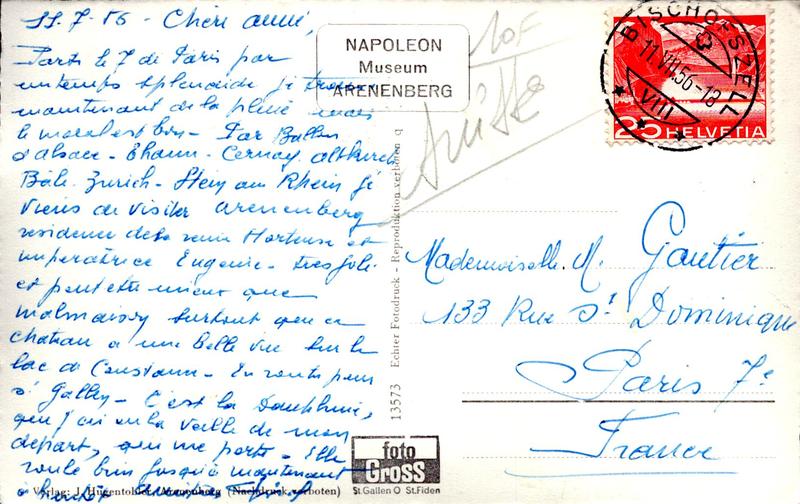 11.7.56 - Chère amie,
Partis le 7 de Paris par
un temps splendide je trouve
maintenant de la pluie mais
le moral est bon - Par Ballon
d'Alsace - Thann - Cernay, Altkirch
Bâle. Zurich - Stein am Rhein je
viens de visiter Arenenberg
résidence de la reine Hortense et
impératrice Eugénie - très joli
et peut être mieux que
Malmaison surtout que ce
château a une belle vue sur le
lac de Constance - En route pour
St Gallen - C'est la Dauphine,
que j'ai eu la veille de mon
départ, qui me porte - Elle
roule bien jusqu'à maintenant
à bientôt
NAPOLEON
Museum
ARENENBERG
10F
BISCHOFSZELL
11.VII.56-18
VIII
25 HELVETIA
Mademoiselle M. Gautier
133 Rue St Dominique
Paris 7e
France
13573 Echter Fotodruck - Reproduktion verboten q
foto
Gross
St.Gallen O St.Fiden
Verlag: J. Hugentobler, Arenenberg (Nachdruck verboten)